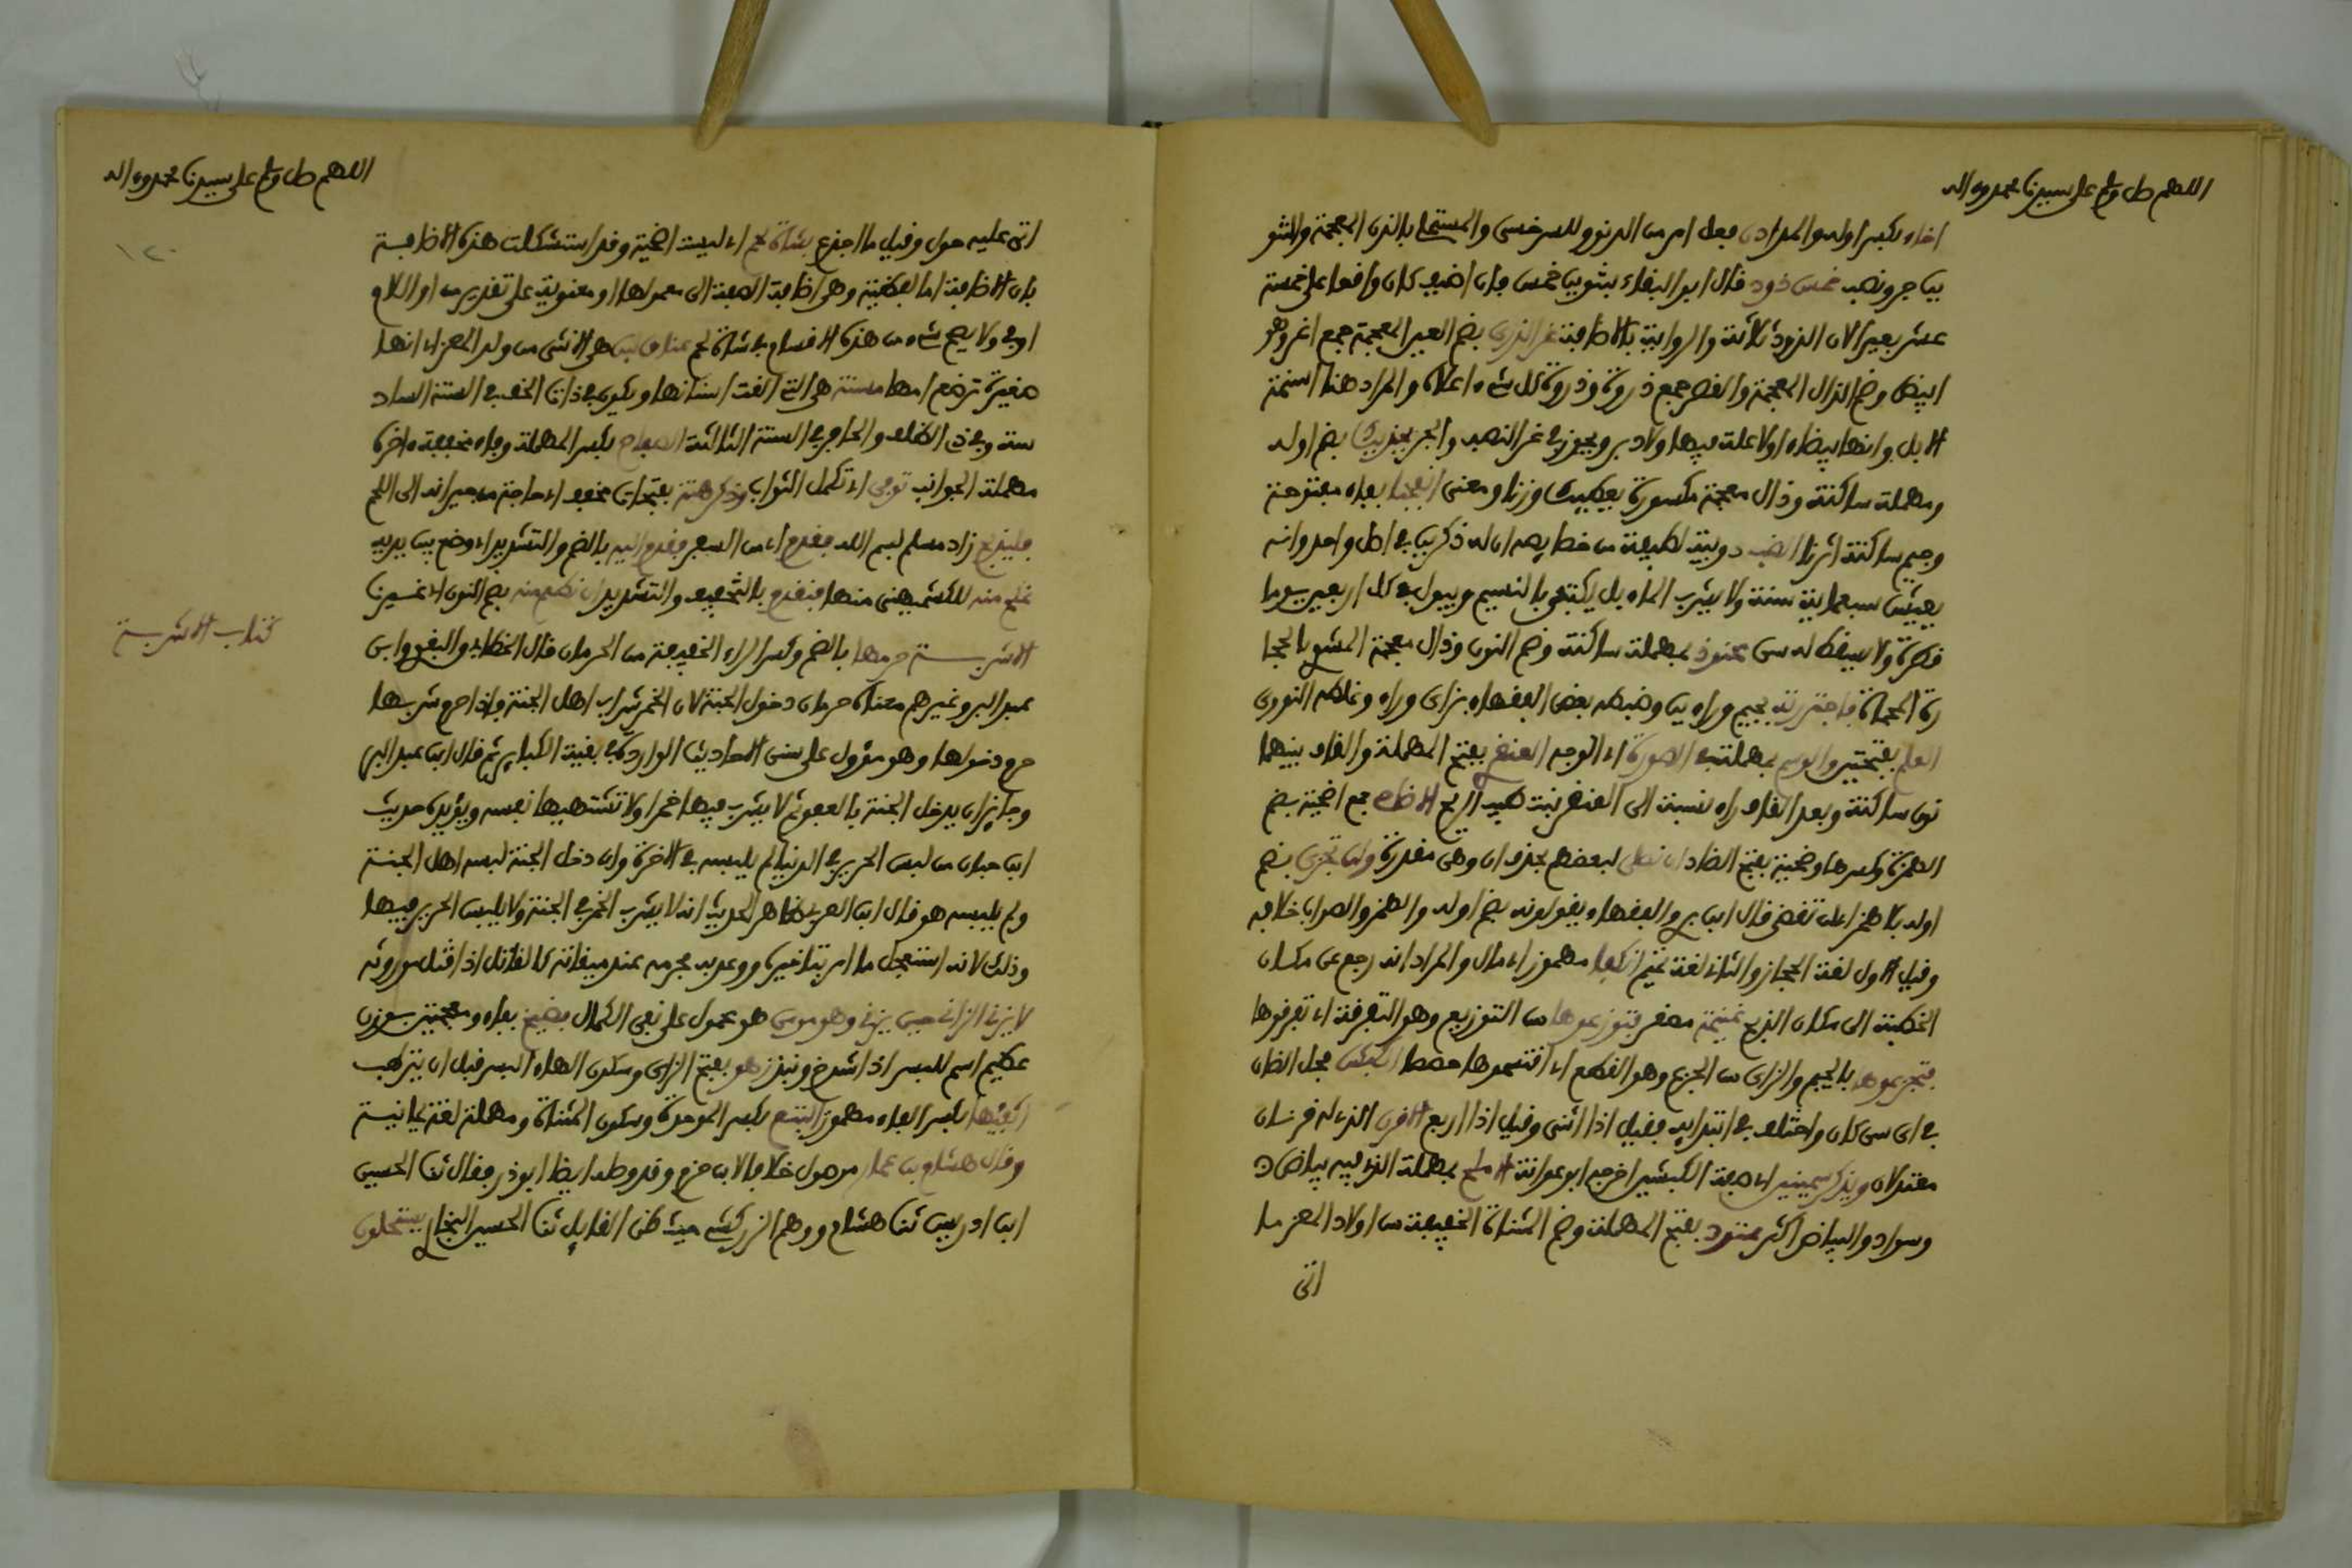 اللهم صل وسلم على سيدنا محمد وءاله
اخاه بكسر اوله والمد ادن فعل امر من الدنو وللسرخسي والمستملي بالذن المعجمة والتنو
ين جر ونصب خمس ذود قال ابو البقاء بتنوين خمس فان اضيف كان واقعا على خمسة
عشر بعيرا لان الذود ثلاثة والرواية بالاضافة غر الذرى بضم الغين المعجمة جمع اغر وهو
ابيض وضم الذال المعجمة والقصر جمع ذروة وذروة كل شيء اعلاه والمراد هنا اسنمة
الابل وانها بيضاء اولا علة فيها ولا دبر ويجوز في غر النصب والجر بضم اوله
ومهملة ساكنة وذال معجمة مكسورة يعطيك وزنا ومعنى انفجنا بفاء مفتوحة
وجيم ساكنة اثرنا الضب دويبة لطيفة من خصايصه ان له ذكرين في اصل واحد وانه
يعيش سبعماية سنة ولا يشرب الماء بل يكتفي بالنسيم ويبول في كل اربعين يوما
قطرة ولا يسقط له سن محنوذ بمهملة ساكنة وضم النون وذال معجمة المشوي بالحجا
رة المحماة فاجتررته بجيم وراءين وضبطه بعض الفقهاء بزاى وراء وغلطه النووي
العلم بفتحتين والوسم بمهملتين الصورة اي الوجه العنقز بفتح المهملة والقاف بينهما
نون ساكنة وبعد القاف زاء نسبة الى العنقز نبت طيب الريح الاضاحي جمع اضحية بضم
الهمزة وكسرها وضحية بفتح الضاد ان نصلي لبعضهم بحذف ان وهي مقدرة ولن تجزي بضم
اوله بلا همز اي لن تقضي قال ابن بري والفقهاء يقولونه بضم اوله والهمز والصواب خلافه
وقيل الاول لغة الحجاز والثاني لغة تميم انكفا مهموز اي مال والمراد انه رجع عن مكان
الخطبة الى مكان الذبح غنيمة مصغر فتوزعوها من التوزيع وهو التفرقة اي تفرقوها
فتجزعوها بالجيم والزاى من الجزع وهو القطع اي اقتسموها حصصا الكبش فحل الضان
في اي سن كان واختلف في ابتدايه فقيل اذا اثنى وقيل اذا اربع الاقرن الذي له قرنان
معتدلان ويذكر سمينين اي صفة الكبشين اخرجه ابو عوانة الاملح بمهملة الذي فيه بياض و
وسواد والبياض اكثر عتود بفتح المهملة وضم المثناة الخفيفة من اولاد المعز ما
اتى
اللهم صل وسلم على سيدنا محمد وءاله
١٢٠
اتى عليه حول وقيل ما اجذع شاة لحم اي ليست اضحية وقد استشكلت هذه الاضافة
بان الاضافة اما لفظية وهي اضافة الصفة الى معمولها او معنوية على تقدير من او اللام
او في ولا يصح شيء من هذه الاقسام في شاة لحم عناق لبن هي الانثى من ولد المعز اي انها
صغيرة ترضع امها مسنة هي التي القت اسنانها ويكون في ذات الخف في السنة الساد
سة وفي ذي الظلف والحافر في السنة الثالثة الصفاح بكسر المهملة وفاء خفيفة ءاخره
مهملة الجوانب توفى اي تكمل الثواب وذكر هنة بفتحات مخفف اي حاجة من جيرانه الى اللحم
فليذبح زاد مسلم بسم الله فقدم اي من السفر فقدم اليه بالضم والتشديد اي وضع بين يديه
نتج منه للكشميهني منها فنقدم بالتخفيف والتشديد ان نطعم منه بضم النون اي غسيرنا
كتاب الاشربة
الاشربة حرمها بالضم وكسر الراء الخفيفة من الحرمان قال الخطابي والبغوي وابن
عبد البر وغيرهم معناه حرمان دخول الجنة لان الخمر شراب اهل الجنة فاذا حرم شربها
حرم دخولها وهو مؤول على سنن الاحاديث الواردة في بقية الكباير ثم قال ابن عبد البر
وجايز ان يدخل الجنة بالعفو ثم لا يشرب فيها خمرا ولا تشتهيها نفسه ويؤيده حديث
ابن حبان من لبس الحرير في الدنيا لم يلبسه في الاخرة وان دخل الجنة لبسه اهل الجنة
ولم يلبسه هو قال ابن العربي ظاهر الحديث انه لا يشرب الخمر في الجنة ولا يلبس الحرير فيها
وذلك لانه استعجل ما امر بتاخيره ووعد به فحرمه عند ميقاته كالقاتل اذا قتل موروثه
لا يزني الزاني حين يزني وهو مومن هو محمول على نفي الكمال فضيخ بفاء ومعجمتين بوزن
عظيم اسم للبسر اذا شدخ ونبذ زهو بفتح الزاى وسكون الهاء البسر قبل ان يترطب
اكفئها بكسر الفاء مهموز البتع بكسر الموحدة وسكون المثناة ومهملة لغة يمانية
وقال هشام بن عمار موصول خلافا لابن حزم وقد وصله ايضا ابو ذر فقال ثنا الحسين
ابن ادريس ثنا هشام ووهم الزركشي حيث ظن القايل ثنا الحسين البخاري يستحلون